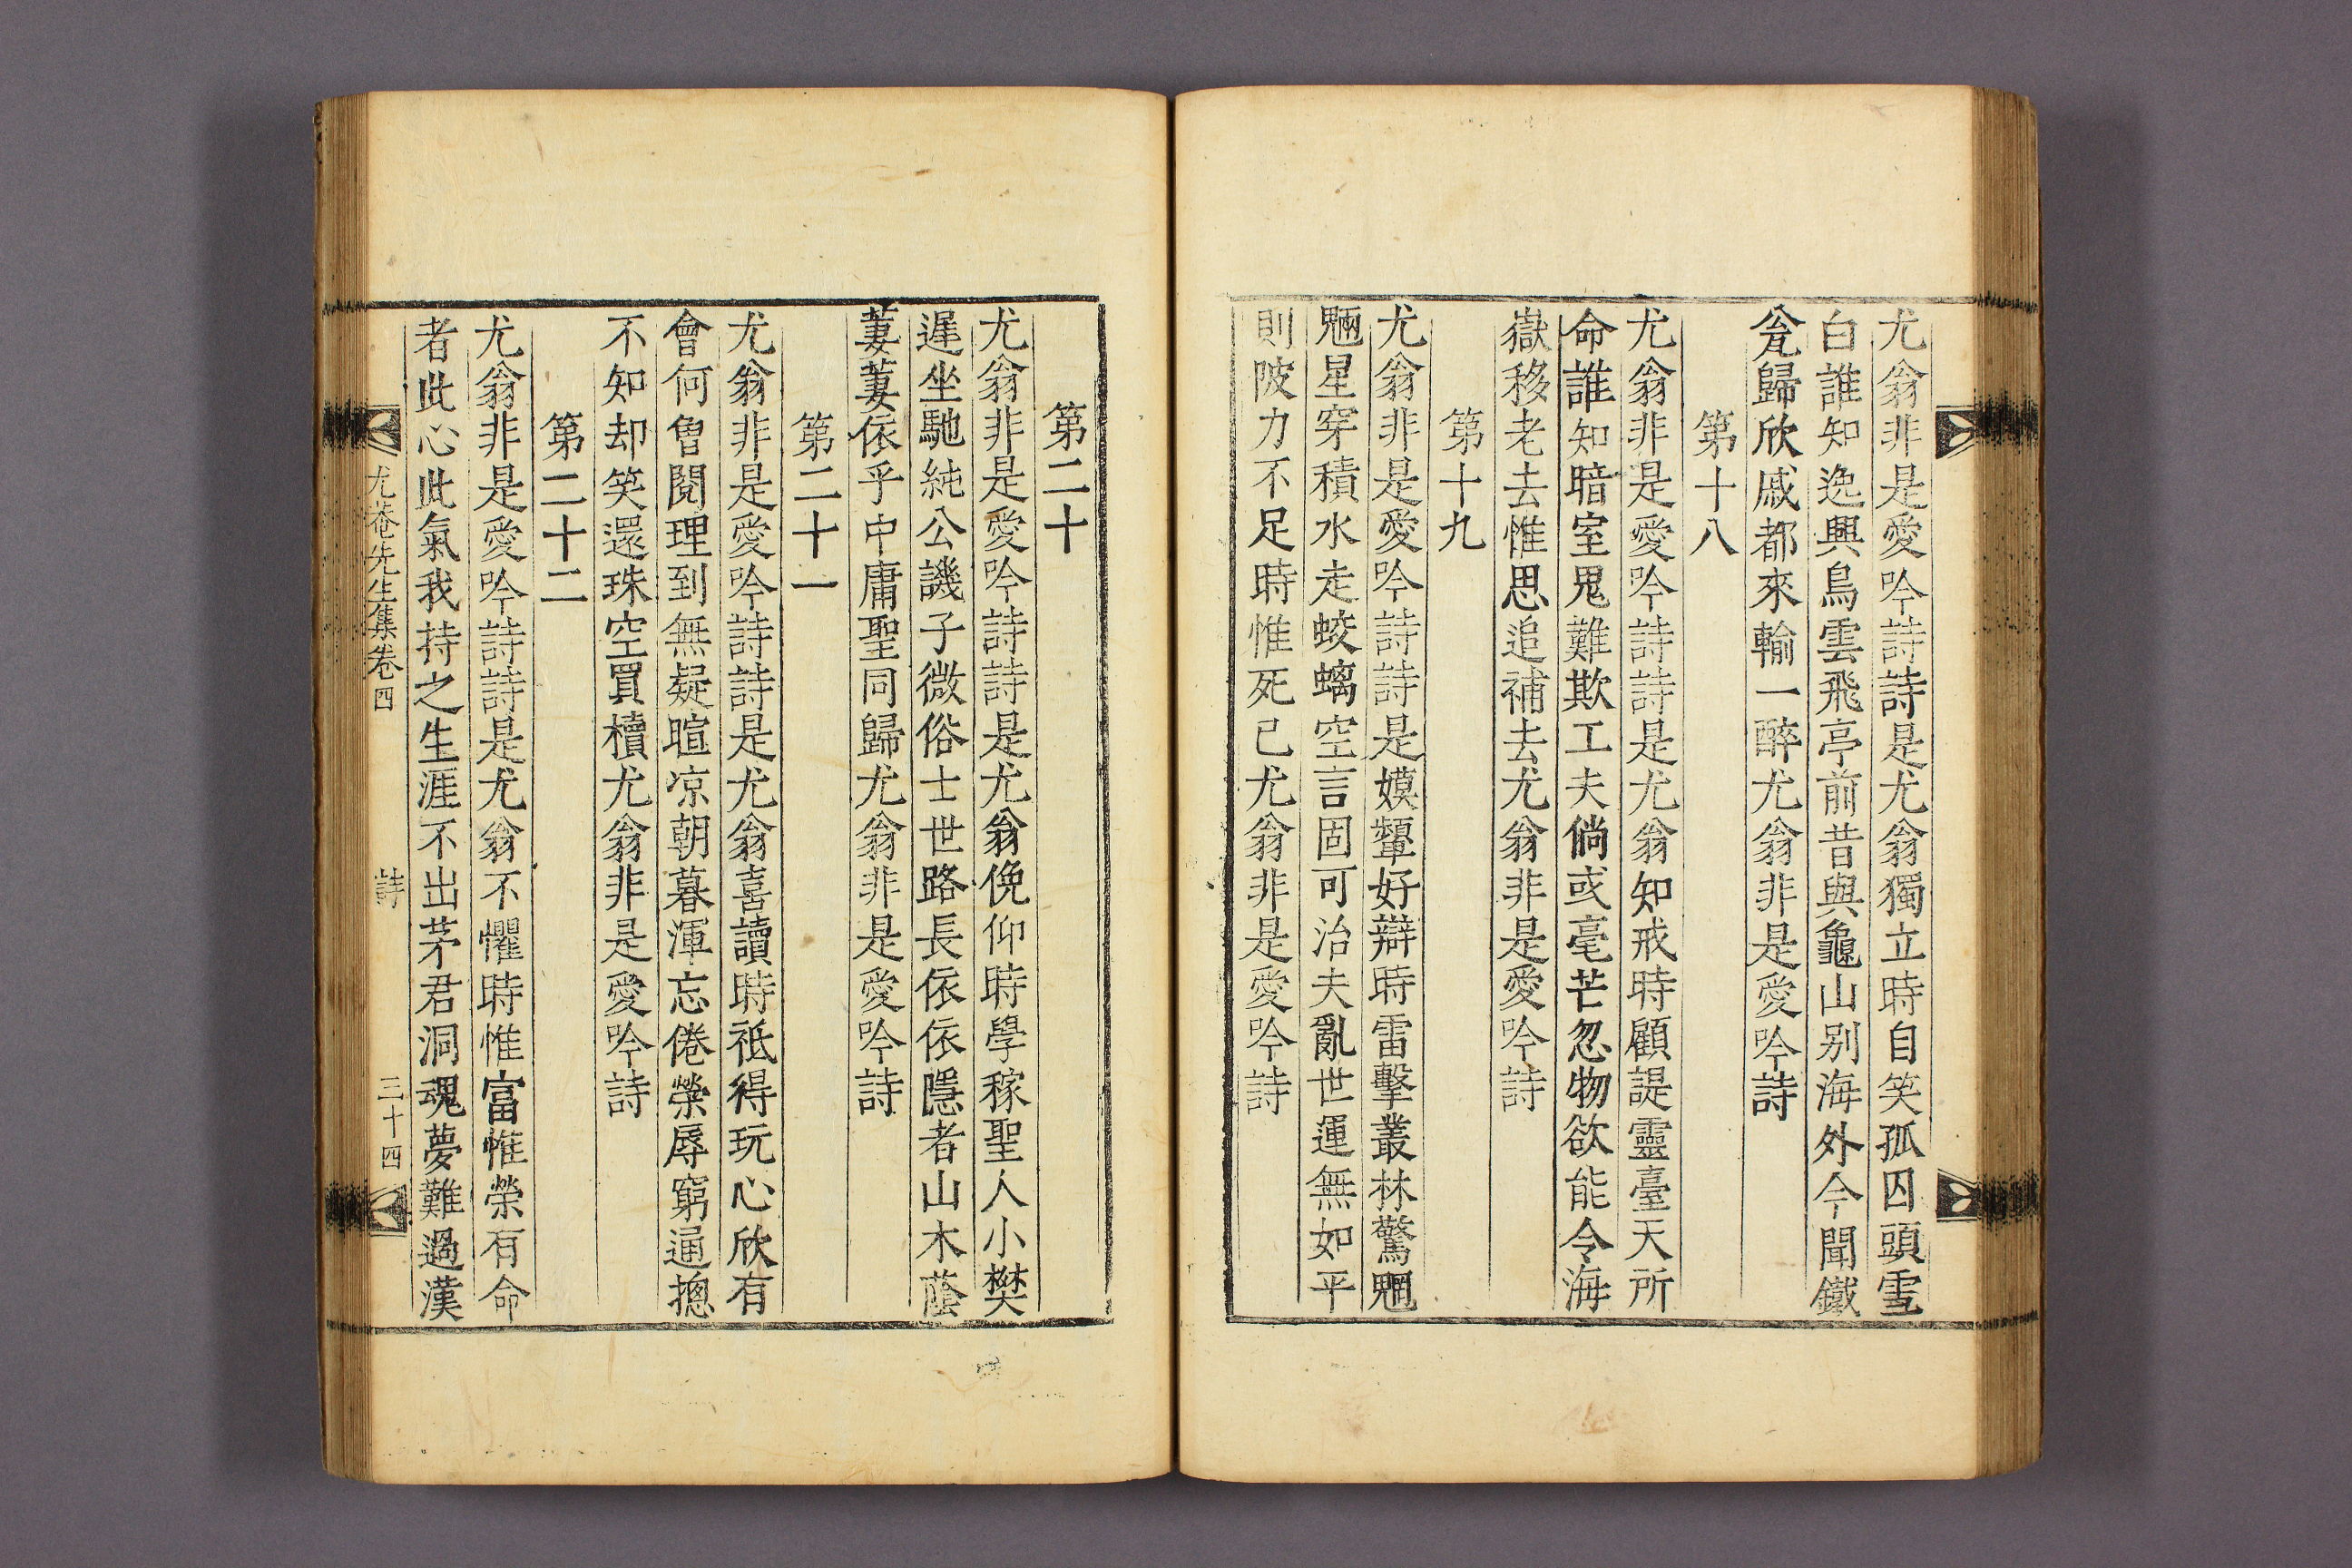 尤翁非是愛吟詩詩是尤翁獨立時自笑孤囚頭雪
白誰知逸興鳥雲飛亭前昔與龜山別海外今聞鐵
瓮歸欣戚都來輸一醉尤翁非是愛吟詩
第十八
尤翁非是愛吟詩詩是尤翁知戒時顧諟靈臺天所
命誰知暗室鬼難欺工夫倘或毫芒忽物欲能令海
嶽移老去惟思追補去尤翁非是愛吟詩
第十九
尤翁非是愛吟詩詩是嫫顰好辯時雷擊叢林驚魍
魎星穿積水走蛟螭空言固可治夫亂世運無如平
則陂力不足時惟死已尤翁非是愛吟詩
第二十
尤翁非是愛吟詩詩是尤翁俛仰時學稼聖人小樊
遲坐馳純公譏子微俗士世路長依依隱者山木蔭
萋萋依乎中庸聖同歸尤翁非是愛吟詩
第二十一
尤翁非是愛吟詩詩是尤翁喜讀時秪得玩心欣有
會何曾閱理到無疑暄凉朝暮渾忘倦榮辱窮通摠
不知却笑還珠空買櫝尤翁非是愛吟詩
第二十二
尤翁非是愛吟詩詩是尤翁不懼時惟富惟榮有命
者此心此氣我持之生涯不出茅君洞魂夢難過漢
尤菴先生集卷四 詩 三十四